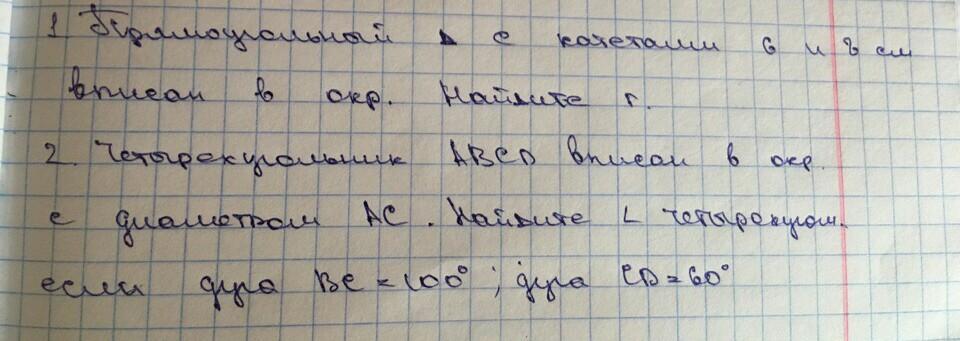 1 Прямоугольный △ с катетами 6 и 8 см
вписан в окр. Найдите r.
2. Четырехугольник ABCD вписан в окр.
с диаметром AC. Найдите ∠ четырехугол.
если дуга BC = 100°; дуга CD = 60°